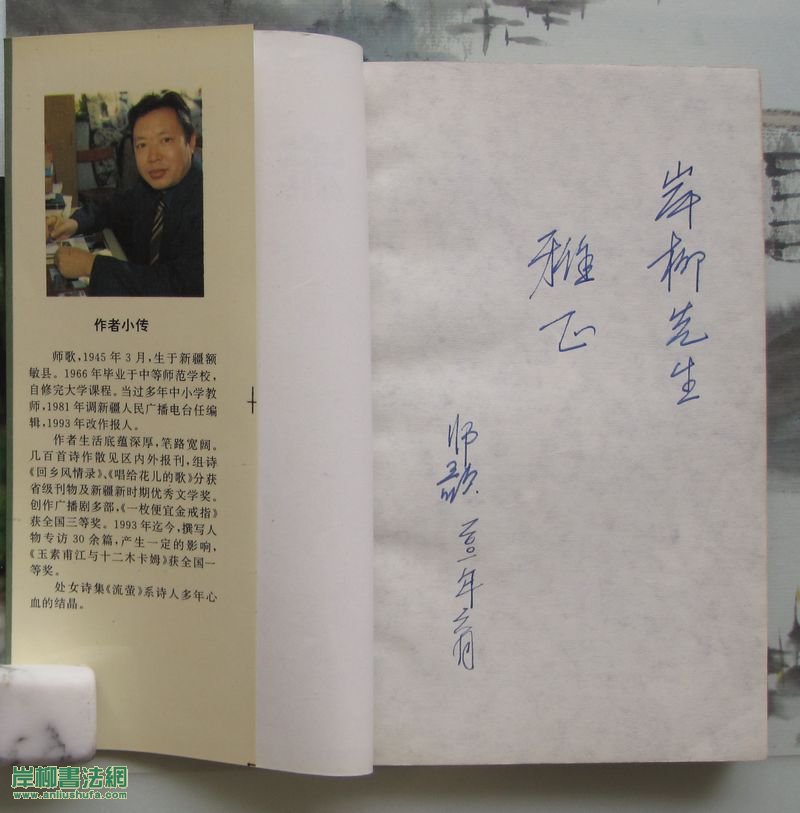 作者小传
师歌,1945年3月,生于新疆额
敏县。1966年毕业于中等师范学校,
自修完大学课程。当过多年中小学教
师,1981年调新疆人民广播电台任编
辑,1993年改作报人。
作者生活底蕴深厚,笔路宽阔。
几百首诗作散见区内外报刊,组诗
《回乡风情录》、《唱给花儿的歌》分获
省级刊物及新疆新时期优秀文学奖。
创作广播剧多部,《一枚便宜金戒指》
获全国三等奖。1993年迄今,撰写人
物专访30余篇,产生一定的影响,
《玉素甫江与十二木卡姆》获全国一
等奖。
处女诗集《流萤》系诗人多年心
血的结晶。
岸柳先生
雅正
师歌
年六月
岸柳書法網
www.anliushufa.com